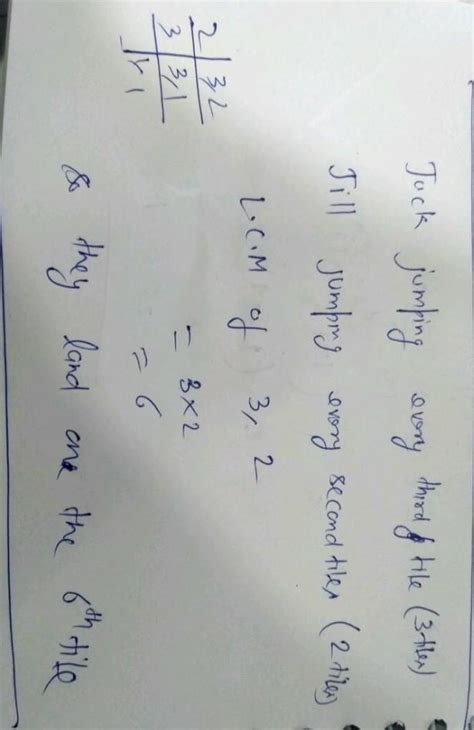 Jack jumping every third tile (3 tiles)
Jill jumping every second tiles (2 tiles)
L.C.M of 3, 2
= 3×2
= 6
2 | 3, 2
3 | 3, 1
1, 1
So they land one the 6th tile